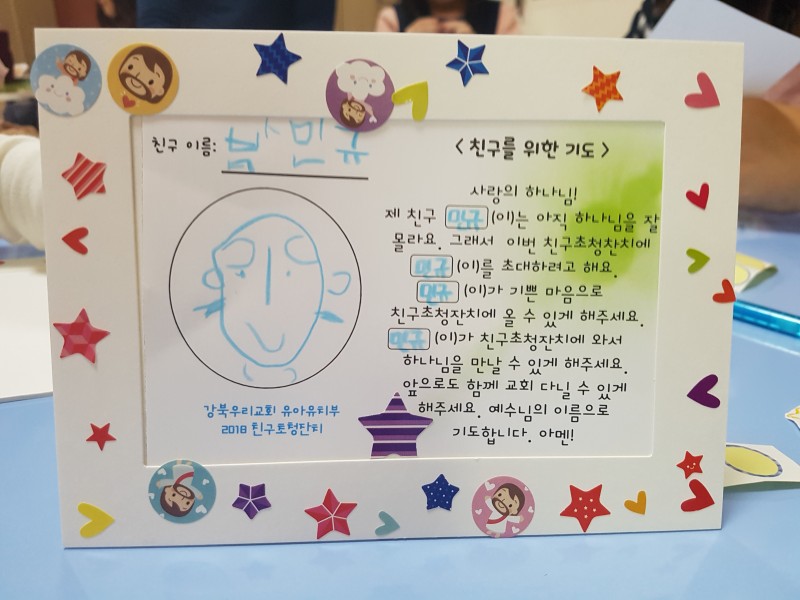 친구 이름: 민규
강북우리교회 유아유치부
2018 친구초청잔치
< 친구를 위한 기도 >
사랑의 하나님!
제 친구 민규 (이)는 아직 하나님을 잘
몰라요. 그래서 이번 친구초청잔치에
민규 (이)를 초대하려고 해요.
민규 (이)가 기쁜 마음으로
친구초청잔치에 올 수 있게 해주세요.
민규 (이)가 친구초청잔치에 와서
하나님을 만날 수 있게 해주세요.
앞으로도 함께 교회 다닐 수 있게
해주세요. 예수님의 이름으로
기도합니다. 아멘!